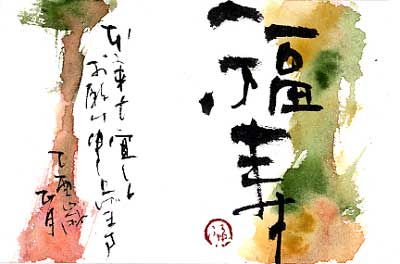 福寿
本年も宜しく
お願い申し上げます
乙酉歳
正月